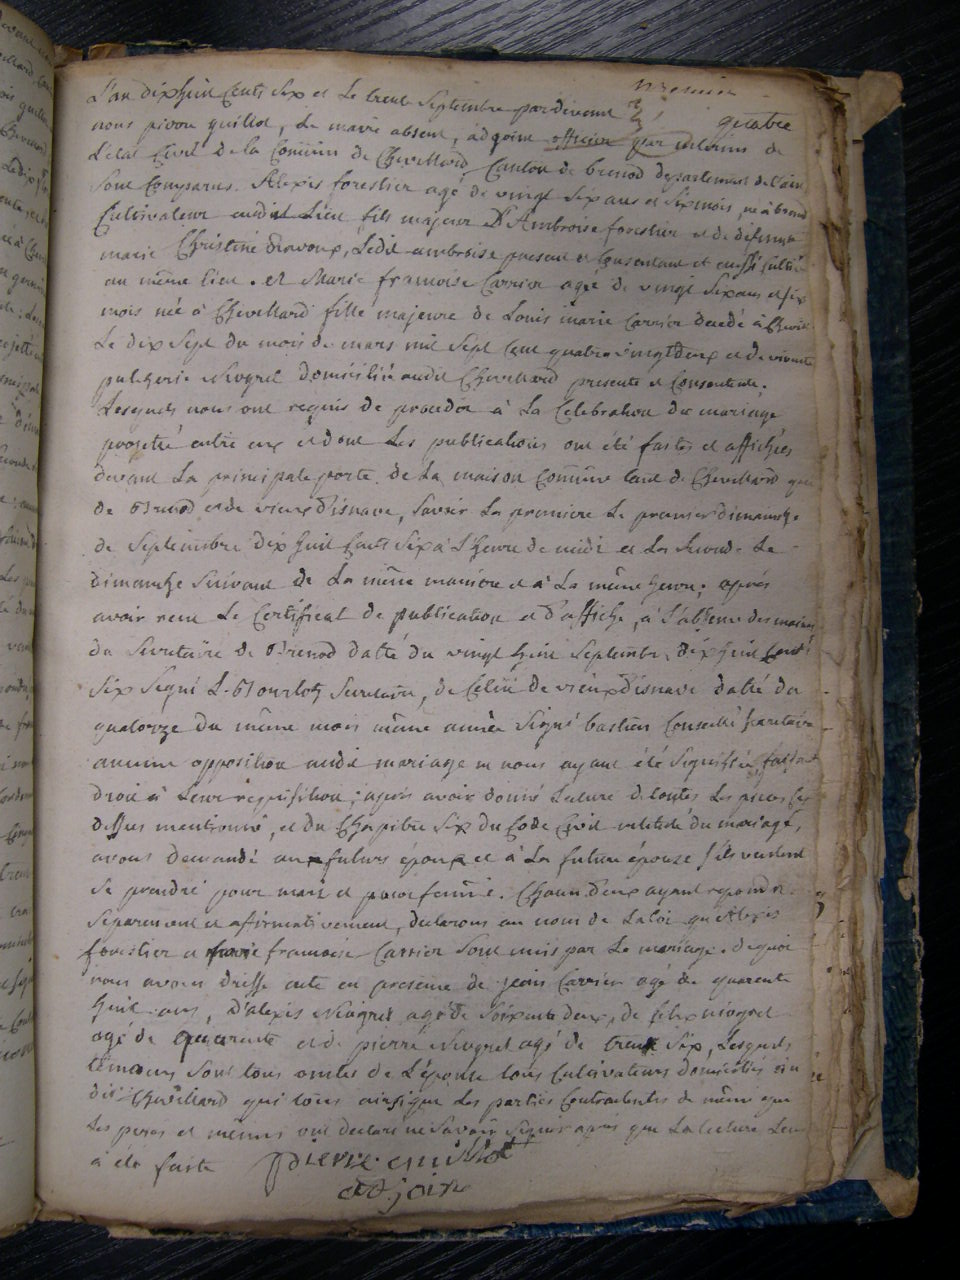 L'an dix huit Cents Six et Le trente Septembre pardevant
quatre
nous pierre guillot, Le maire absent, adjoint officier par interim de
L'état Civil de la Comũne de Chevillard Canton de brenod departement de l'ain
Sont Comparus. Alexis forestier agé de vingt Six ans et Six mois, né à brenod
Cultivateur audit Lieu fils majeur D'Ambroise forestier et de defunte
marie Christine Ravoux, Ledit ambroise present et Consentant et aussi Cultiv
au même lieu. et Marie francoise Carrier agée de vingt Six ans et six
mois née à Chevillard fille majeure de Louis marie Carrier decedé à Chevill
Le dix Sept du mois de mars mil Sept Cent quatre vingt deux et de vivante
pulcherie Niogret Domiciliée audit Chevillard presente et Consentente.
Lesquels nous ont requis de proceder à La Celebration du mariage
projetté entre eux et dont Les publications ont été faites et affichées
devant La principale porte de La maison Comũne tant de Chevillard que
de Brenod et de vieux Disnave, Savoir La premiere Le premier dimanche
de Septembre dix huit Cents Six à L'heure de midi et La Seconde Le
dimanche Suivant de La même maniere et à La même heure; après
avoir reçu Le Certificat de publication et d'affiche, à L'absence des maires
du Secretaire de Brenod datté du vingt huit Septembre dix huit Cents
Six Signé L. Bourlot Secretaire, de Celui de vieux Disnave datté du
quatorze du même mois même année Signé bastien Conseillé Secretaire
aucune opposition audit mariage ne nous ayant été Signifiée faisant
droit à Leur requisition; après avoir donné Lecture de toutes Les pieces Cy
dessus mentionné, et du Chapitre Six du Code Civil intitulé du mariage,
avons demandé au futur époux et à La future épouse S'ils veulent
Se prendre pour mari et pour femme. Chacun d'eux ayant repondu
Separement et affirmativement, declarons au nom de La loi qu'Alexis
forestier et marie francoise Carrier Sont unis par Le mariage. de quoi
nous avons dressé acte en presence de jean Carrier agé de quarente
huit ans, d'alexis Niogret agé de Soixante deux, de felix niogret
agé de quarente et de pierre Niogret agé de trente Six, Lesquels
témoins Sont tous oncles de L'épouse tous Cultivateurs domiciliés au
dit Chevillard qui tous ainsi que Les parties Contractentes de même que
Les peres et mères ont declaré ne Savoir Signer après que La lecture Leur
a été faite
pierre guillot
adjoint